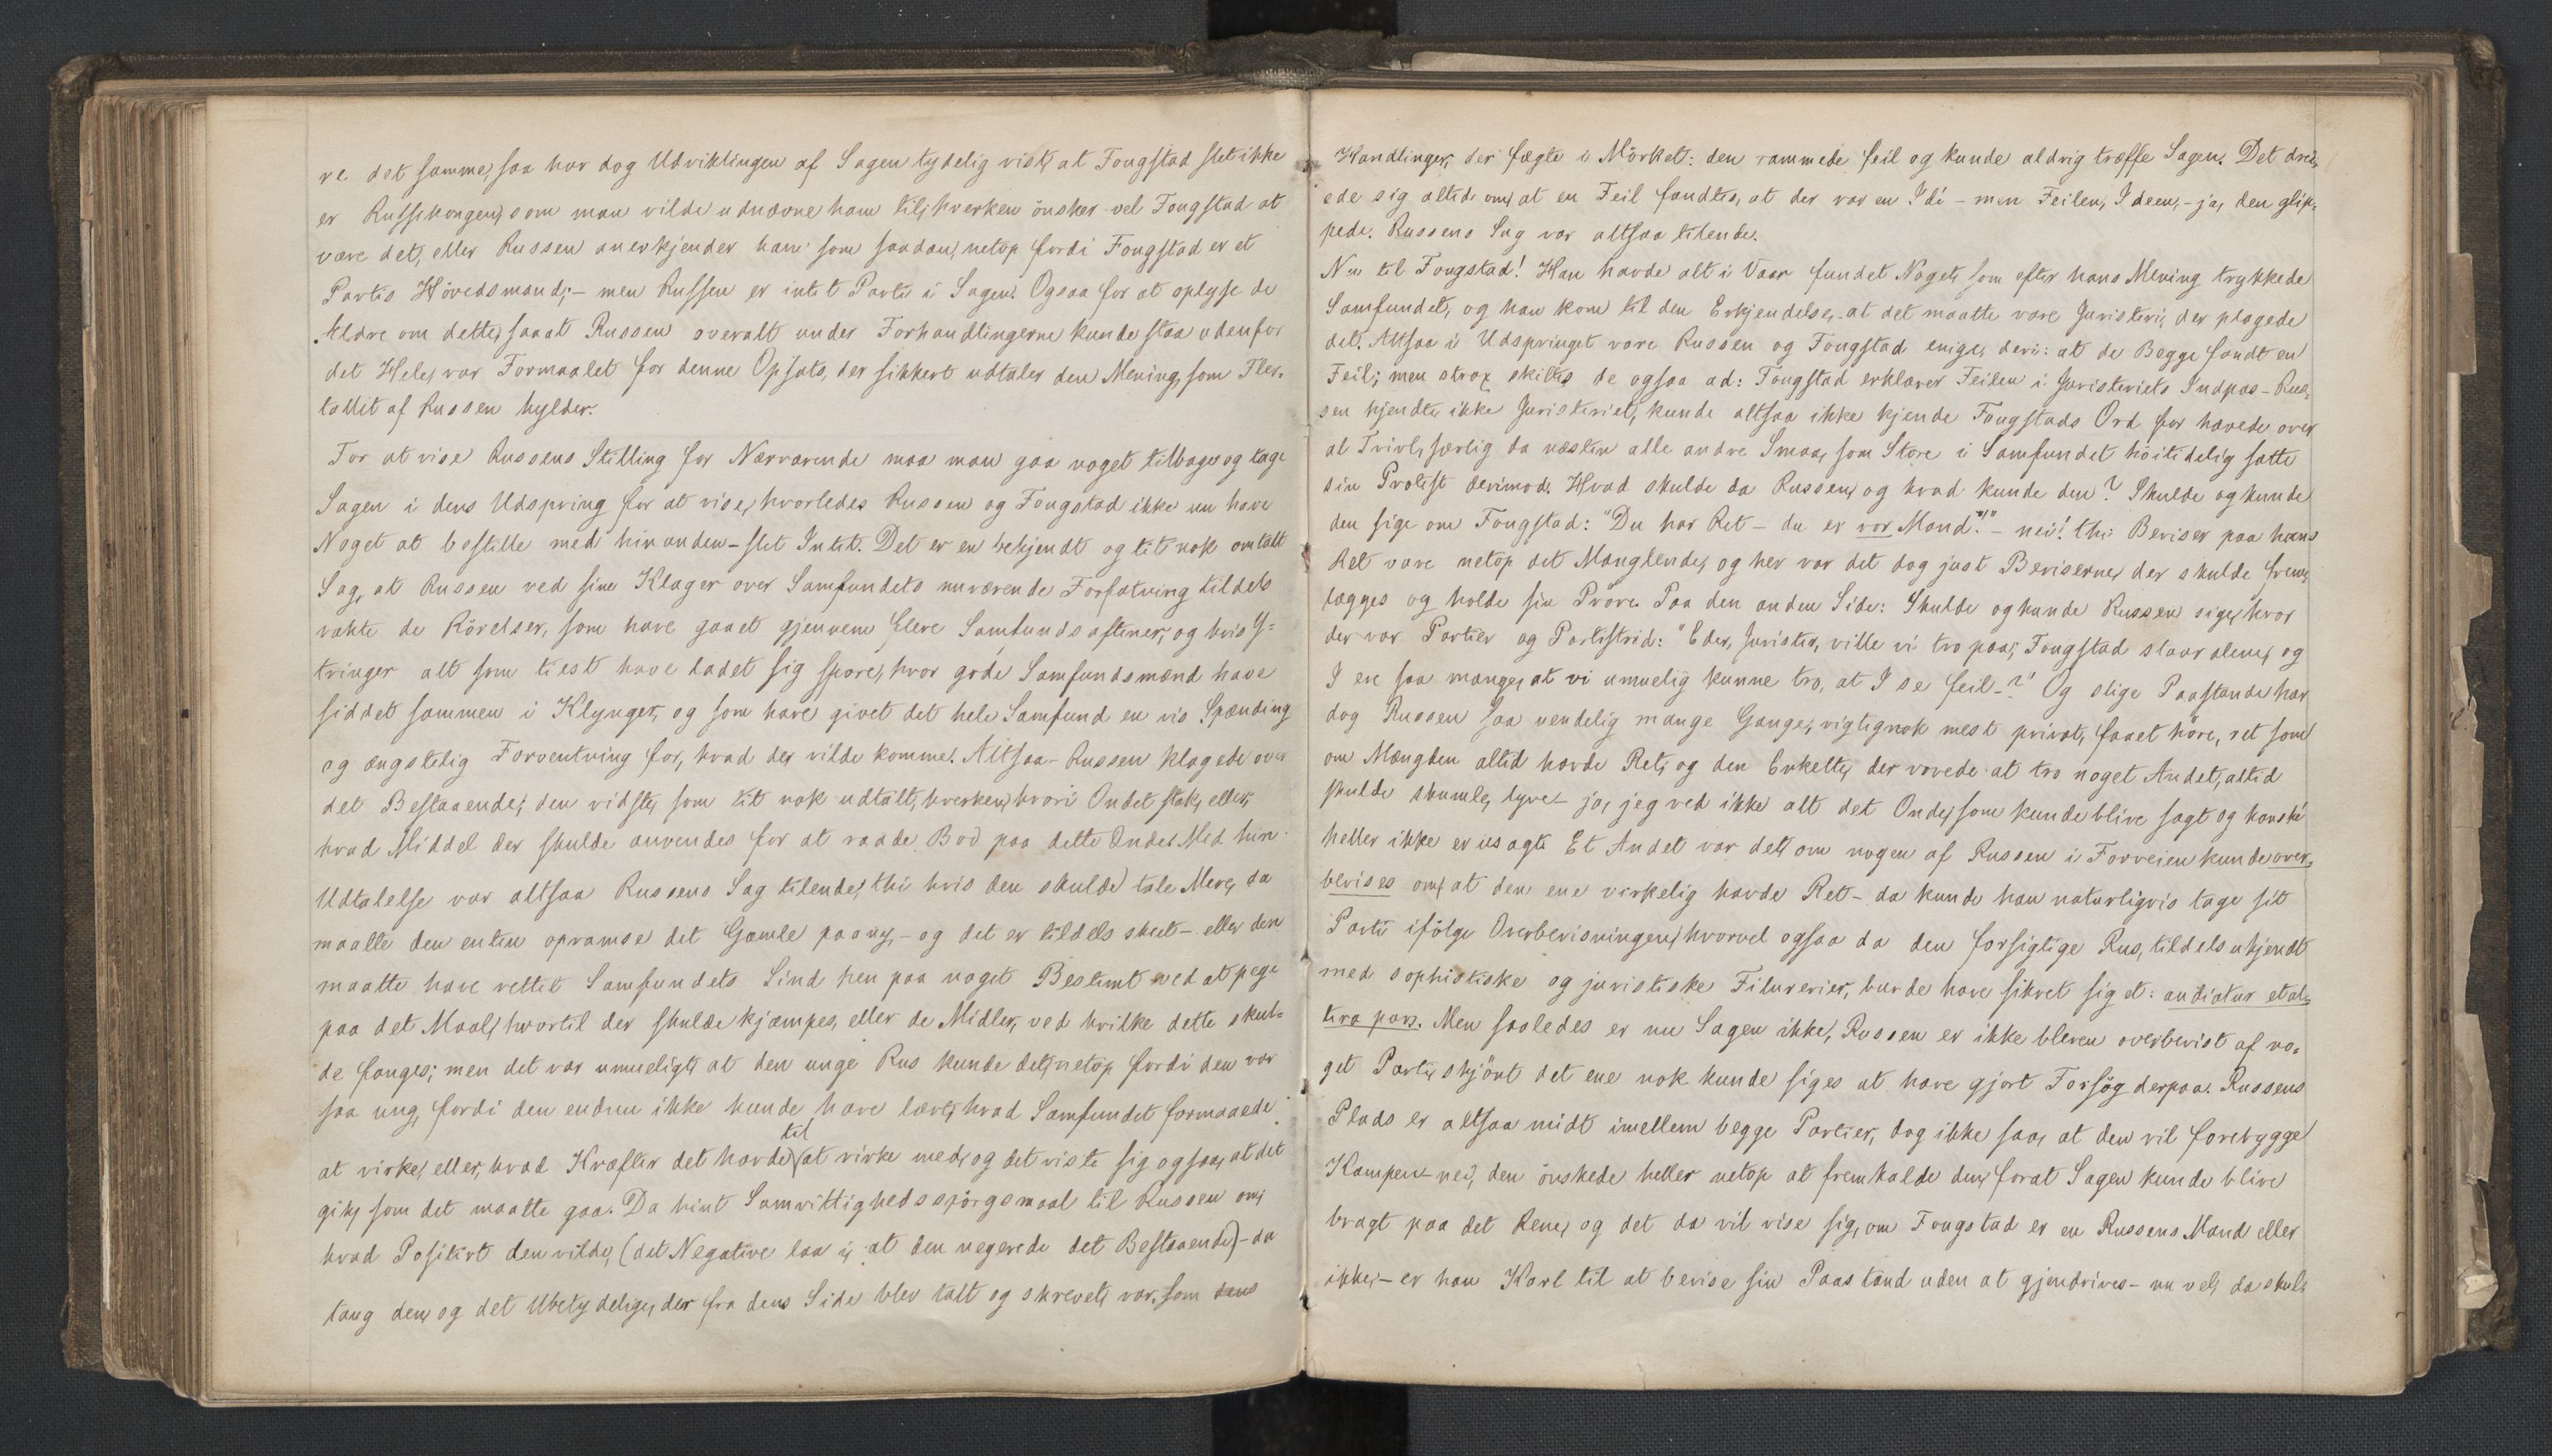 re det samme, saa har dog Udviklingen af Sagen tydelig vist, at Fougstad slet ikke
er Russekongen, som man vilde udnævne ham til; hverken ønsker vel Fougstad at
være det, eller Russen anerkjender ham som saadan, netop fordi Fougstad er et
Partis Høvedsmand; – men Russen er intet Parti i Sagen. Ogsaa for at oplyse de
Ældre om dette, saaat Russen overalt under Forhandlingerne kunde staa udenfor
det Hele, var Formaalet for denne Opsats, der sikkert udtaler den Mening, som Fler-
tallet af Russen hylder.
For at vise Russens Stilling for Nærværende maa man gaa noget tilbage og tage
Sagen i dens Udspring for at vise, hvorledes Russen og Fougstad ikke nu have
Noget at bestille med hinanden – slet Intet. Det er en bekjendt og tit nok omtalt
Sag, at Russen ved sine Klager over Samfundets nuværende Forfatning tildels
vakte de Rørelser, som have gaaet gjennem flere Samfundsaftener, og hvis Y-
tringer alt som tiest have ladet sig spore, hvor gode Samfundsmænd have
siddet sammen i Klynger, og som have givet det hele Samfund en vis Spænding
og ængstelig Forventning for, hvad der vilde komme. Altsaa – Russen klagede over
det Bestaaende; den vidste, som tit nok udtalt, hverken, hvori Ondet stak, eller,
hvad Middel der skulde anvendes for at raade Bod paa dette Onde. Med hin
Udtalelse var altsaa Russens Sag tilende, thi hvis den skulde tale Mere, da
maatte den enten opramse det Gamle paany, – og det er tildels skeet – eller den
maatte have rettet Samfundets Sind hen paa noget Bestemt ved at pege
paa det Maal, hvortil der skulde kjæmpes, eller de Midler, ved hvilke dette skul-
de fanges; men det var umueligt, at den unge Rus kunde det, netop fordi den var
saa ung, fordi den endnu ikke kunde have lært, hvad Samfundet formaaede
til
at virke, eller, hvad Kræfter det havde at virke med, og det viste sig ogsaa, at det
gik, som det maatte gaa. Da hint Samvittighedsspørgsmaal til Russen om,
hvad Positivt den vilde, (det Negative laa i, at den negerede det Bestaaende) – da
taug den, og det Ubetydelige, der fra dens Side blev talt og skrevet, var, som dens
Handlinger, der fægte i Mörket: den rammede feil og kunde aldrig træffe Sagen. Det drei-
ede sig altid om, at en Feil fandtes, at der var en Idé – men Feilen, Ideen, – ja, den glip-
pede. Russens Sag var altsaa tilende.
Nu til Fougstad! Han havde alt i Vaar fundet Noget, som efter hans Mening trykkede
Samfundet, og han kom til den Erkjendelse, at det maatte være Juristeri, der plagede
det. Altsaa i Udspringet vare Russen og Fougstad enige, deri: at de Begge fandt en
Feil; men strax skiltes de ogsaa ad: Fougstad erklærer Feilen i Juristeriets Indpas – Rus-
sen kjendte ikke Juristeriet, kunde altsaa ikke kjende Fougstads Ord for hævede over
al Tvivl, særlig da næsten alle andre Smaa, som Store i Samfundet höitidelig satte
sin Protest derimod. Hvad skulde da Russen, og hvad kunde den? Skulde og kunde
den sige om Fougstad: "Du har Ret – du er vor Mand!" – nei! thi Beviser paa hans
Ret vare netop det Manglende, og her var det dog just Beviserne, der skulde frem-
lægges og holde sin Pröve. Paa den anden Side: Skulde og kunde Russen sige, hvor
der var Partier og Partistrid: "Eder, Jurister, ville vi tro paa; Fougstad staar alene, og
I ere saa mange, at vi umuelig kunne tro, at I se feil –?" Og slige Paastande har
dog Russen saa uendelig mange Gange, vigtignok mest privat, faaet höre, ret som
om Mængden altid havde Ret, og den Enkelte, der vovede at tro noget Andet, altid
skulde skumle, lyve – ja, jeg ved ikke alt det Onde, som kunde blive sagt og kanske
heller ikke er usagt. Et Andet var det, om nogen af Russen i Forveien kunde over-
bevises om, at den ene virkelig havde Ret – da kunde han naturligvis tage sit
Parti ifölge Overbevisningen, hvorvel ogsaa da den forsigtige Rus, tildels ukjendt
med sophistiske og juristiske Filurerier, burde have sikret sig et: audiatur et al-
tera pars. Men saaledes er nu Sagen ikke, Russen er ikke bleven overbevist af no-
get Parti, skjönt det ene nok kunde siges at have gjort Forsög derpaa. Russens
Plads er altsaa midt imellem begge Partier, dog ikke saa, at den vil forebygge
Kampen – nei, den önskede heller netop at fremkalde den, forat Sagen kunde blive
bragt paa det Rene, og det da vil vise sig, om Fougstad er en Russens Mand eller
ikke; – er han Karl til at bevise sin Paastand uden at gjendrives – nu vel, da skul-